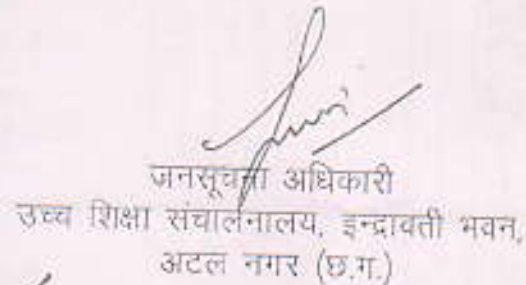 जनसूचना अधिकारी
उच्च शिक्षा संचालनालय, इन्द्रावती भवन,
अटल नगर (छ.ग.)